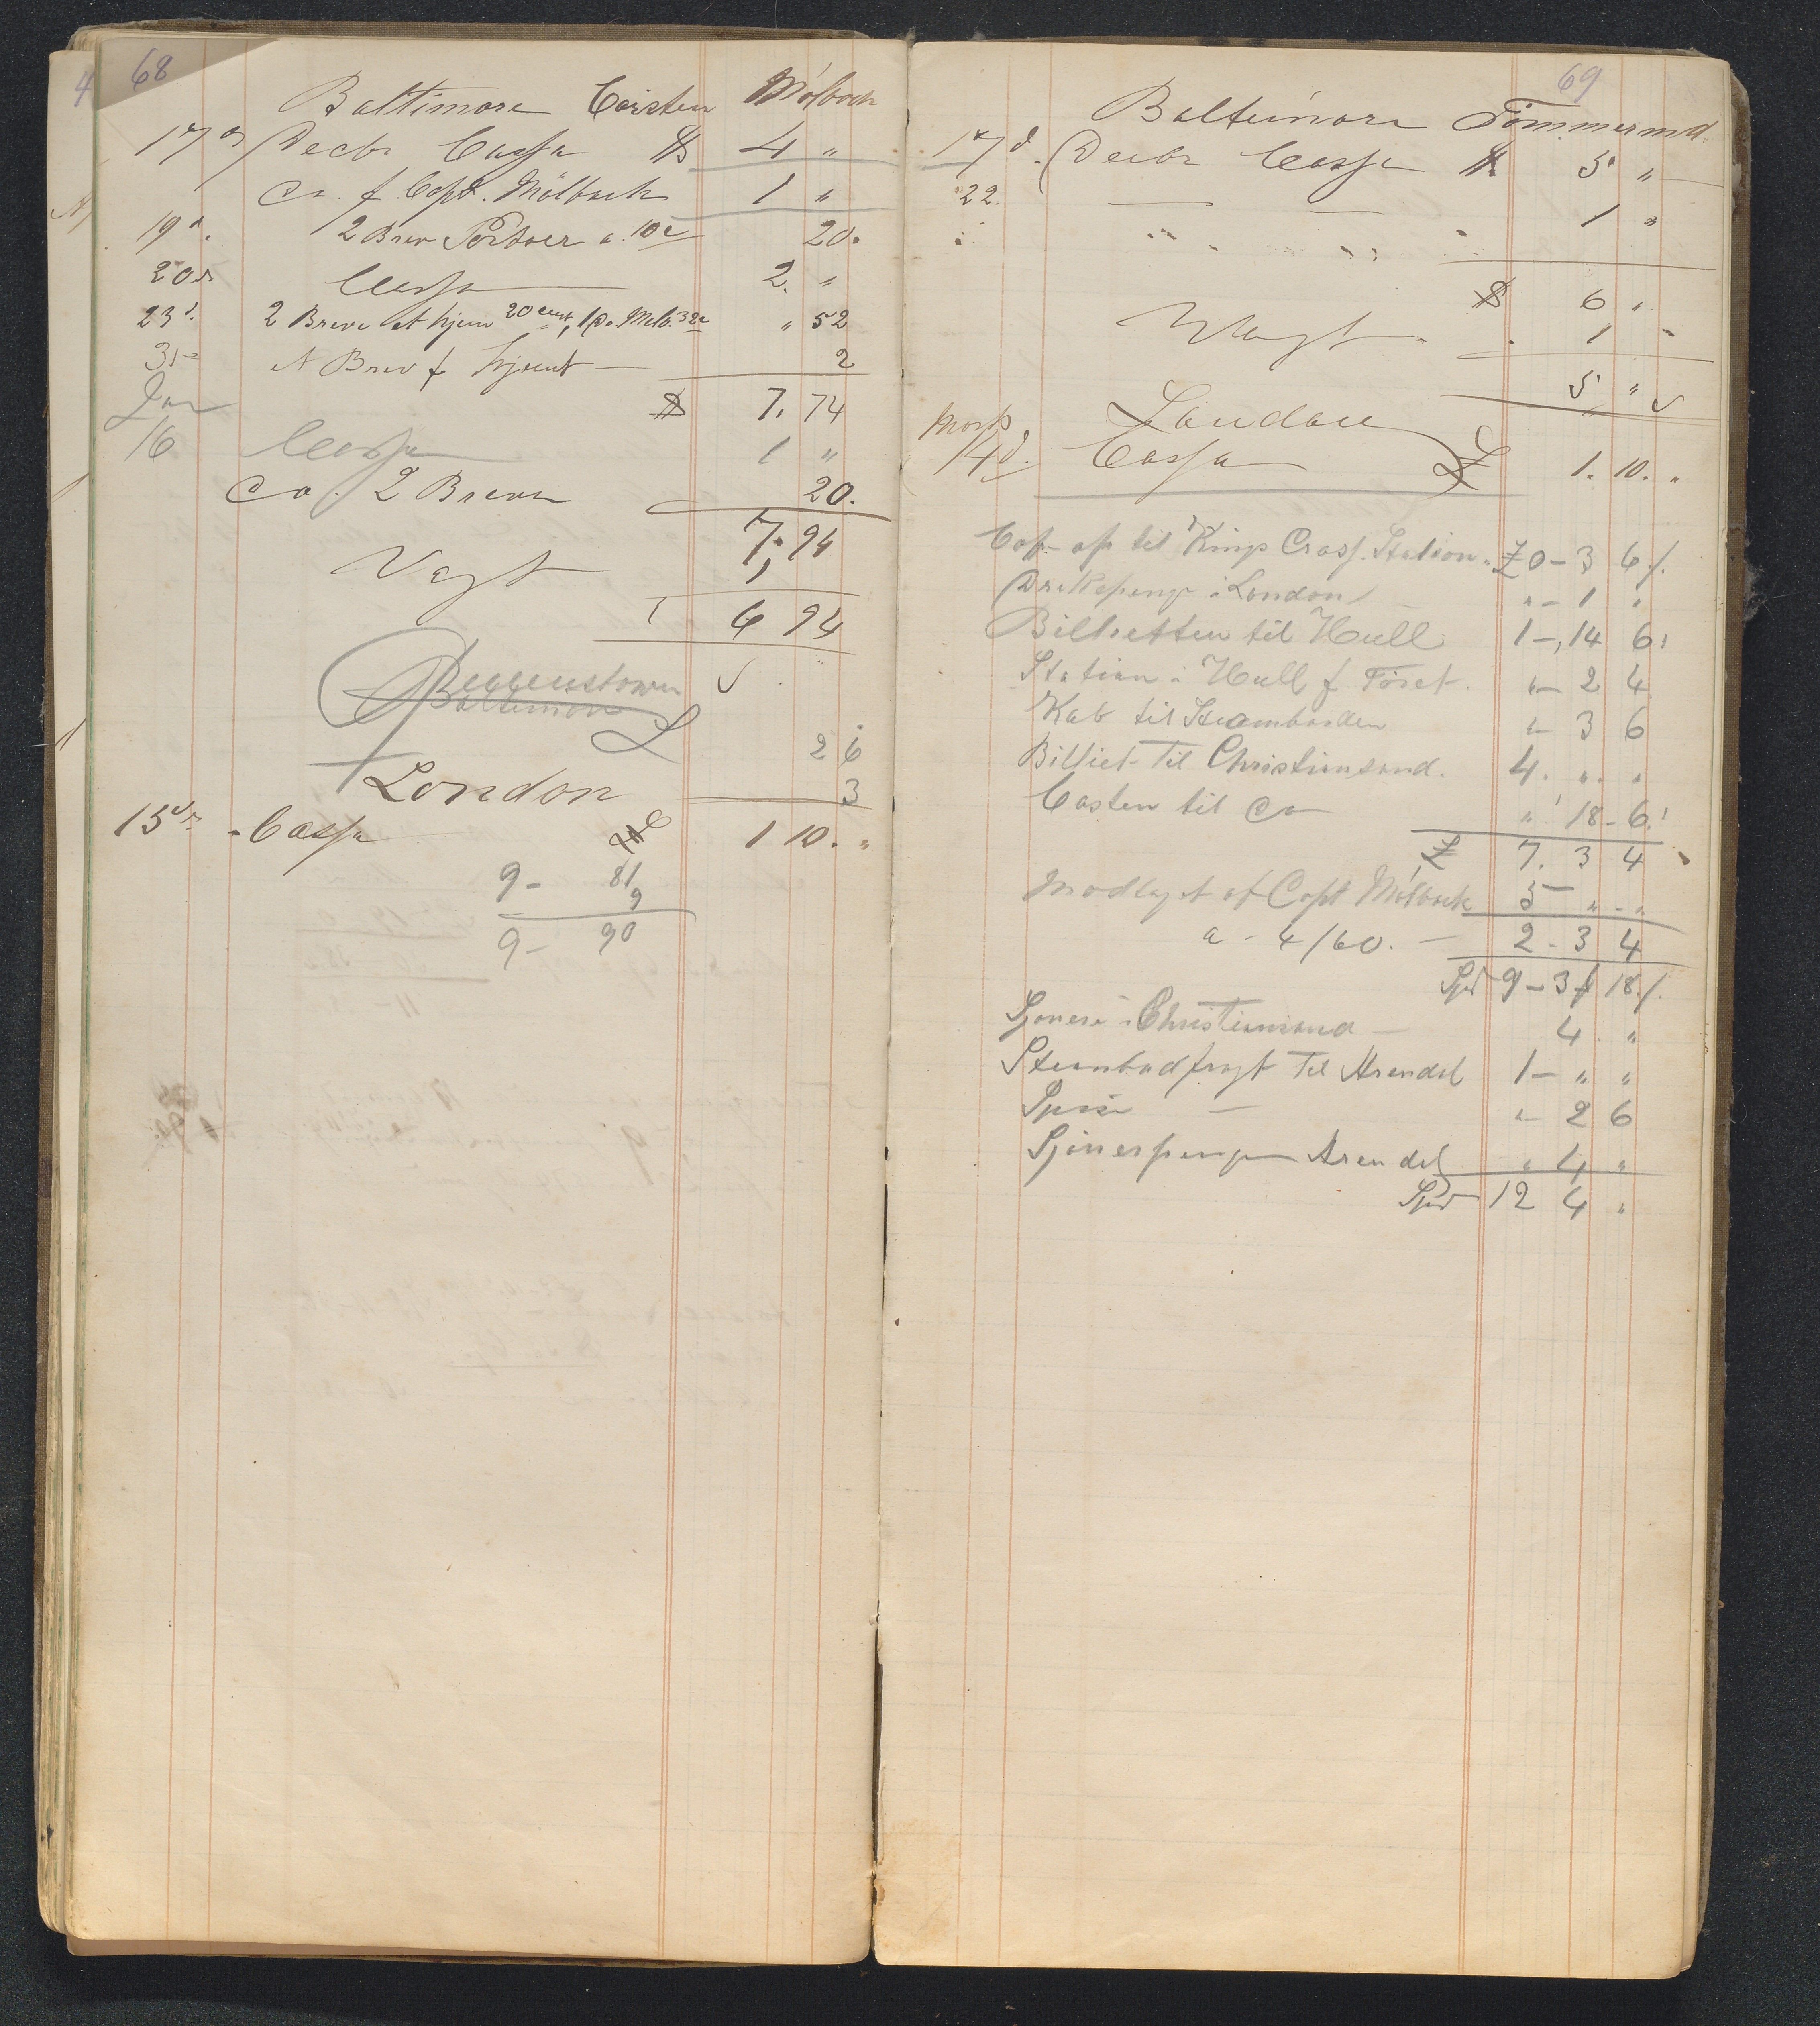 68
Baltimore Carsten Mölbach
17 Decbr Cassa $ 4 "
Do. f. Capt. Mölbach 1 "
19 2 Brev Portoer a. 10c 20.
20 Cassa 2. "
23 2 Breve At hjem 20 cent, 1 Do. Melb. 32c " 52
31 A Brev f hjemt 2
$ 7. 74
Jan
16 Cassa 1 "
Do. 2 Breve 20.
7. 94
Vagt 1
6 94
Queenstown
Baltimore
£ 2 6
London 3
15 Cassa £ 1 10. "
9 - 81
9
9 - 90
69
Baltimore Tömmermd.
17d. Decbr Cassa $ 5 "
22. 1 "
$ 6 "
Vagt 1 -
5 "
London
Marts
14d. Cassa £ 1. 10. "
Cap- op til Kings Cross. Station. £ 0 - 3 6/.
Drikepenge i London " - 1 "
Billietten til Hull 1 - 14 6
Station i Hull f Töiet. " - 2 4
Kab til Steambaaden " - 3 6
Billiet Til Christiansand. 4. " "
Costen til Do " 18 - 6
£ 7. 3 4
Modtaget af Capt Mölbach 5 " - "
a - 4/60. - 2 - 3 4
Spd 9 - 3 18/.
Sjouer i Christiansand - 4 "
Steambadfragt Til Arendal 1 - " "
Spise - " - 2 6
Sjouerpenge Arendal " 4 "
Spd 12 4 "